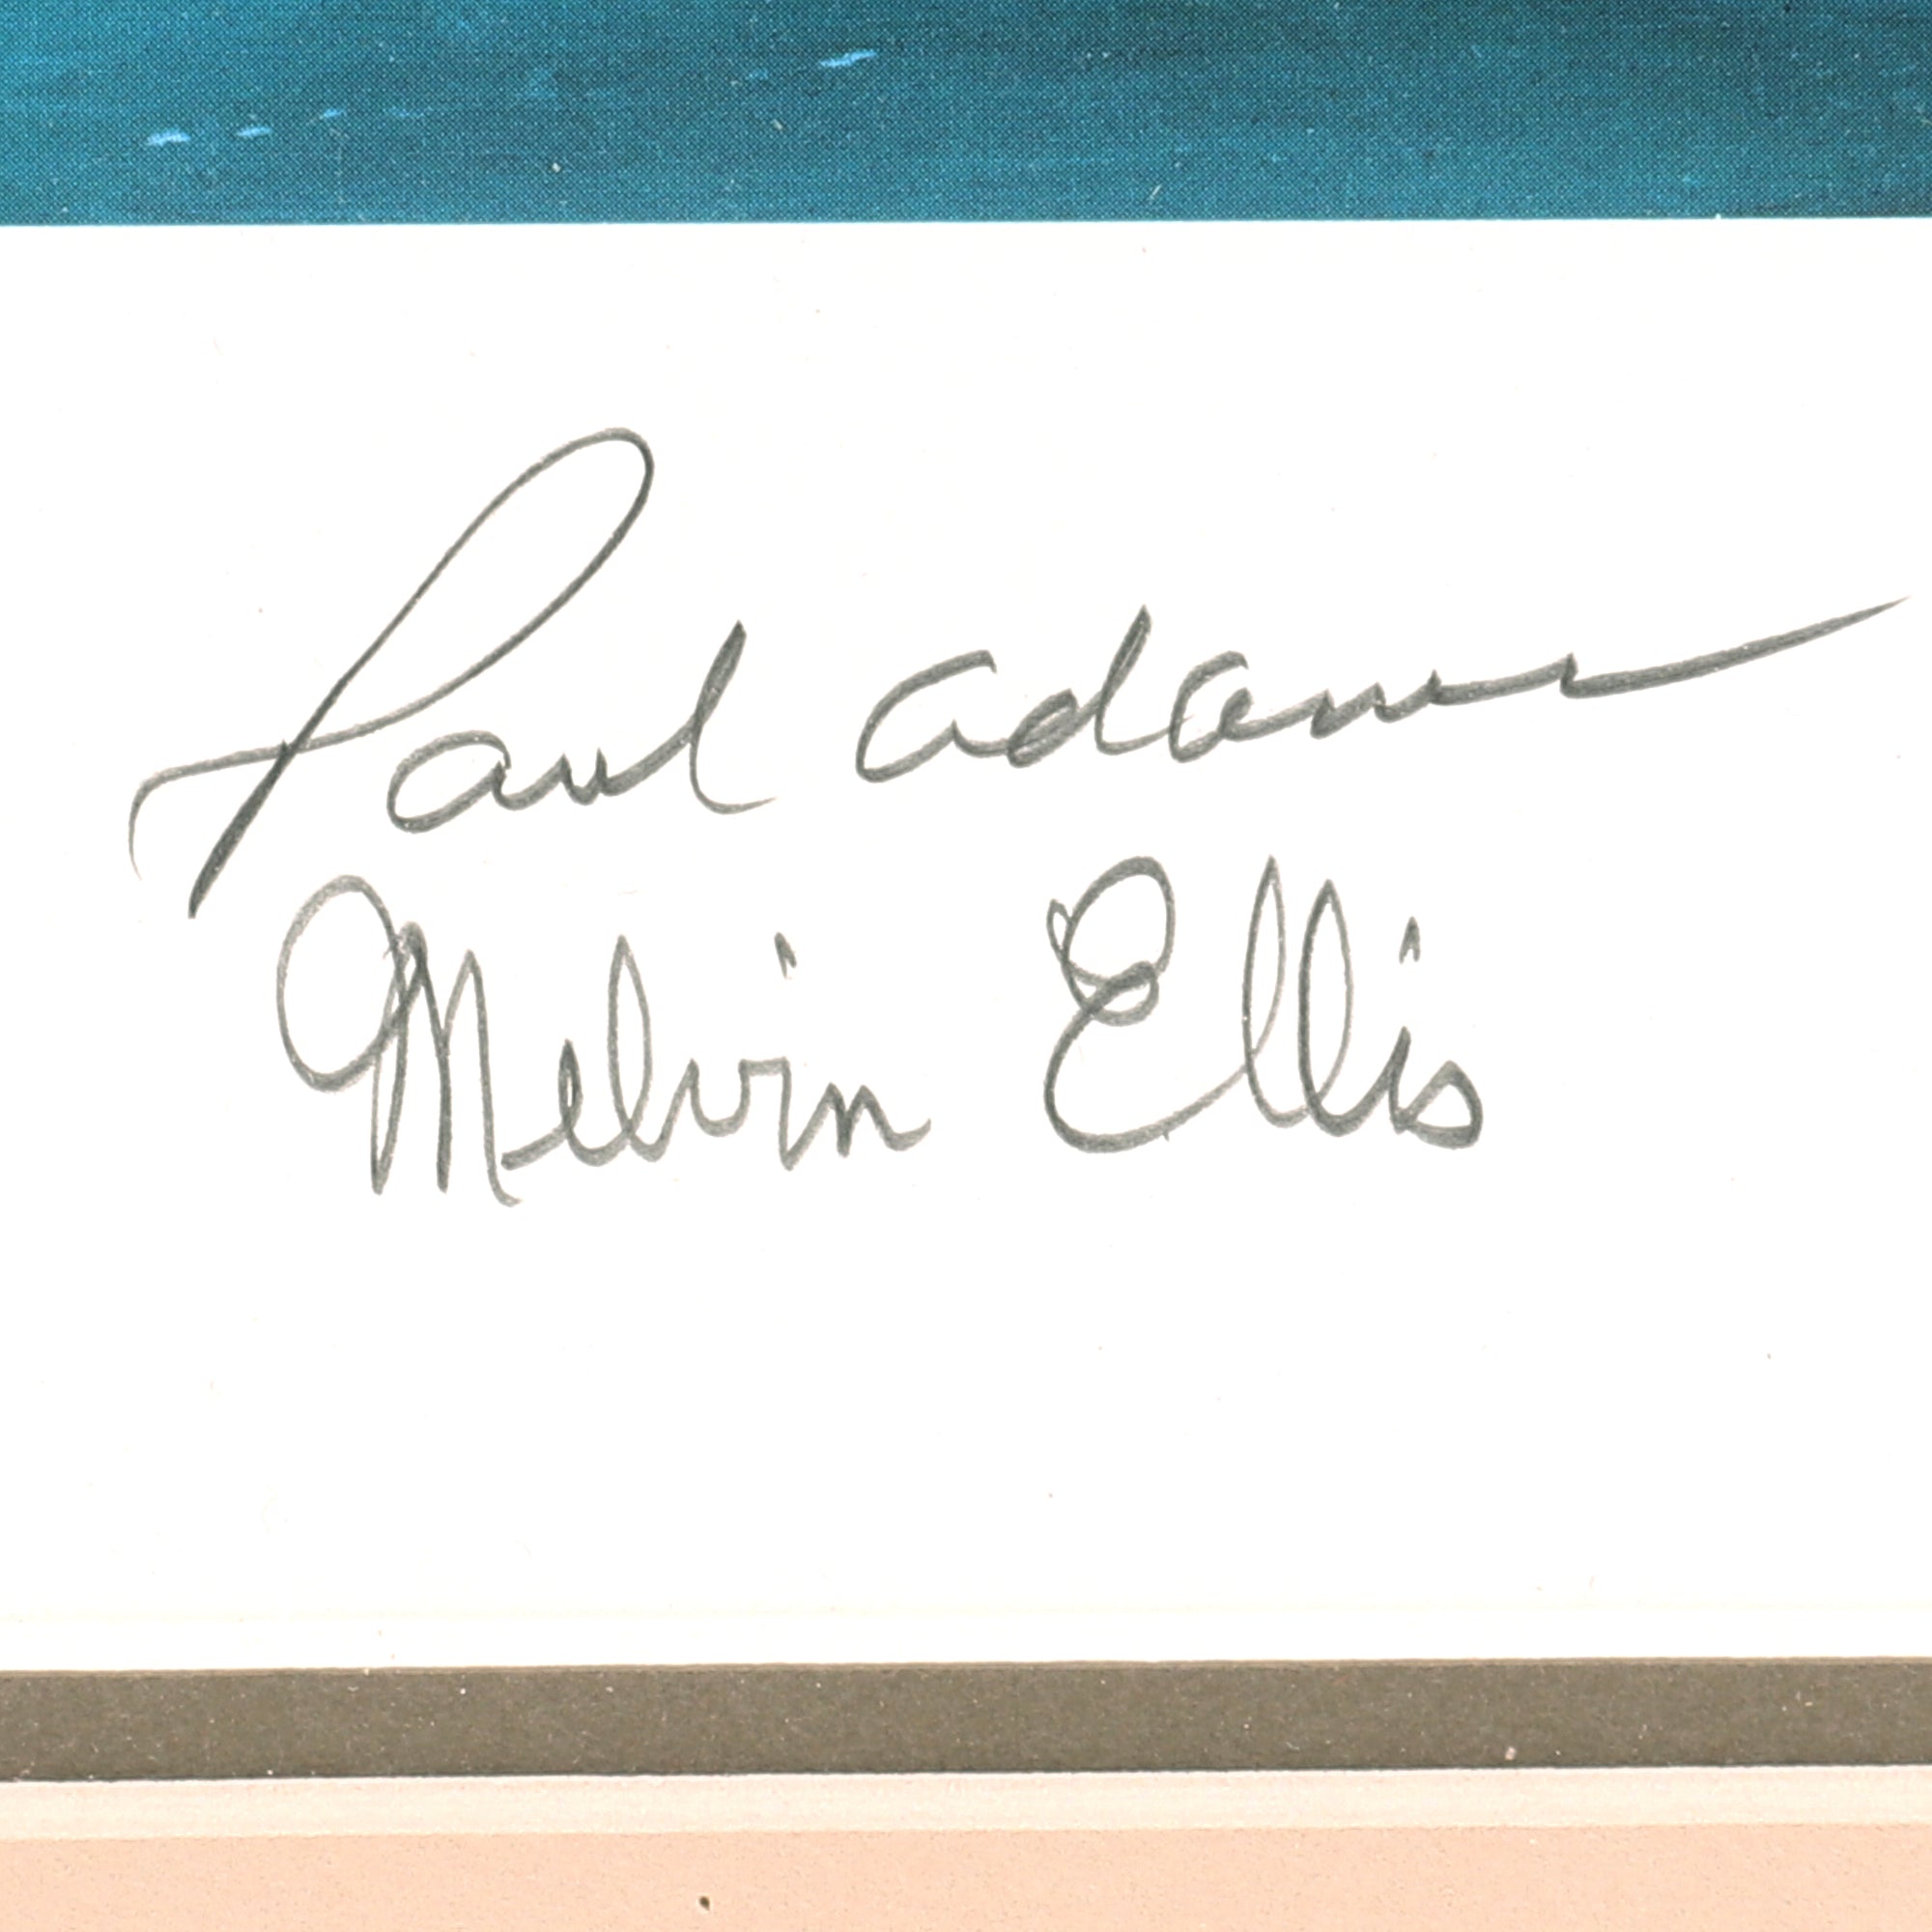 Paul Adams
Melvin Ellis